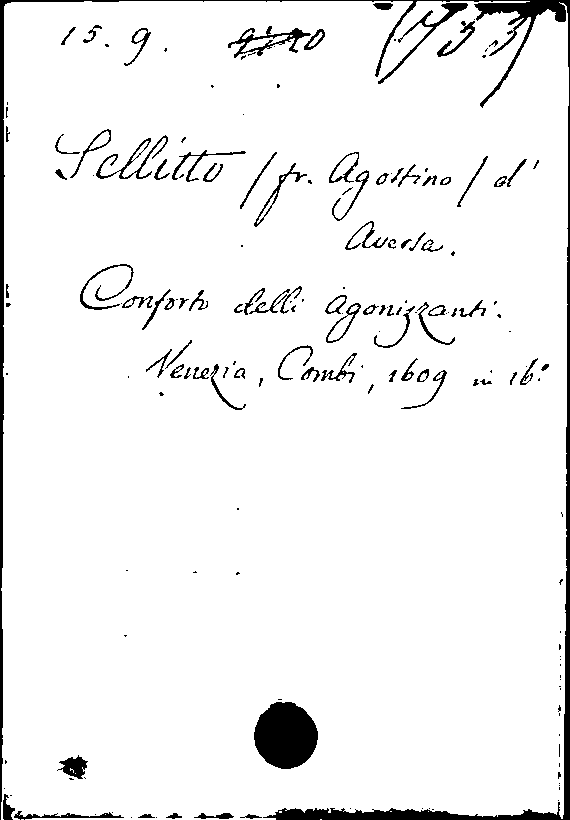 15. 9.
Sellitto / fr. Agostino / d'
Aversa.
Conforto delli agonizzanti.
Venezia, Combi, 1609 in 16.°